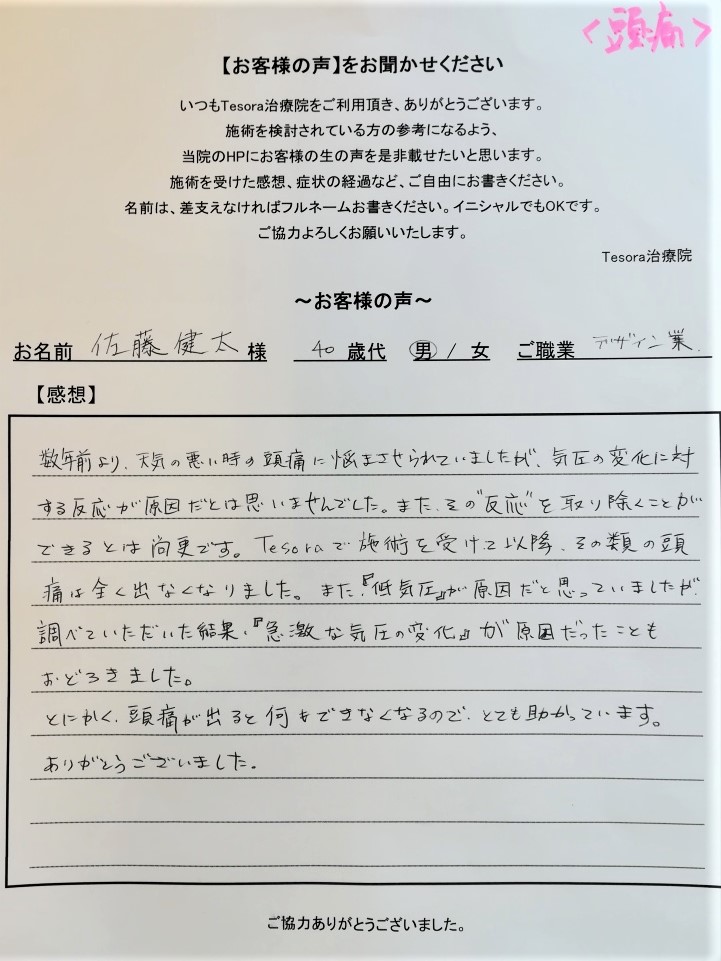 <頭痛>
【お客様の声】をお聞かせください
いつもTesora治療院をご利用頂き、ありがとうございます。
施術を検討されている方の参考になるよう、
当院のHPにお客様の生の声を是非載せたいと思います。
施術を受けた感想、症状の経過など、ご自由にお書きください。
名前は、差支えなければフルネームお書きください。イニシャルでもOKです。
ご協力よろしくお願いいたします。
Tesora治療院
～お客様の声～
お名前 佐藤健太 様 40 歳代 男 / 女 ご職業 デザイン業.
【感想】
数年前より、天気の悪い時の頭痛に悩まさせられていましたが、気圧の変化に対
する反応が原因だとは思いませんでした。また、その"反応"を取り除くことが
できるとは尚更です。Tesoraで施術を受けて以降、その類の頭
痛は全く出なくなりました。また、『低気圧』が原因だと思っていましたが、
調べていただいた結果、『急激な気圧の変化』が原因だったことも
おどろきました。
とにかく、頭痛が出ると何もできなくなるので、とても助かっています。
ありがとうございました。
ご協力ありがとうございました。